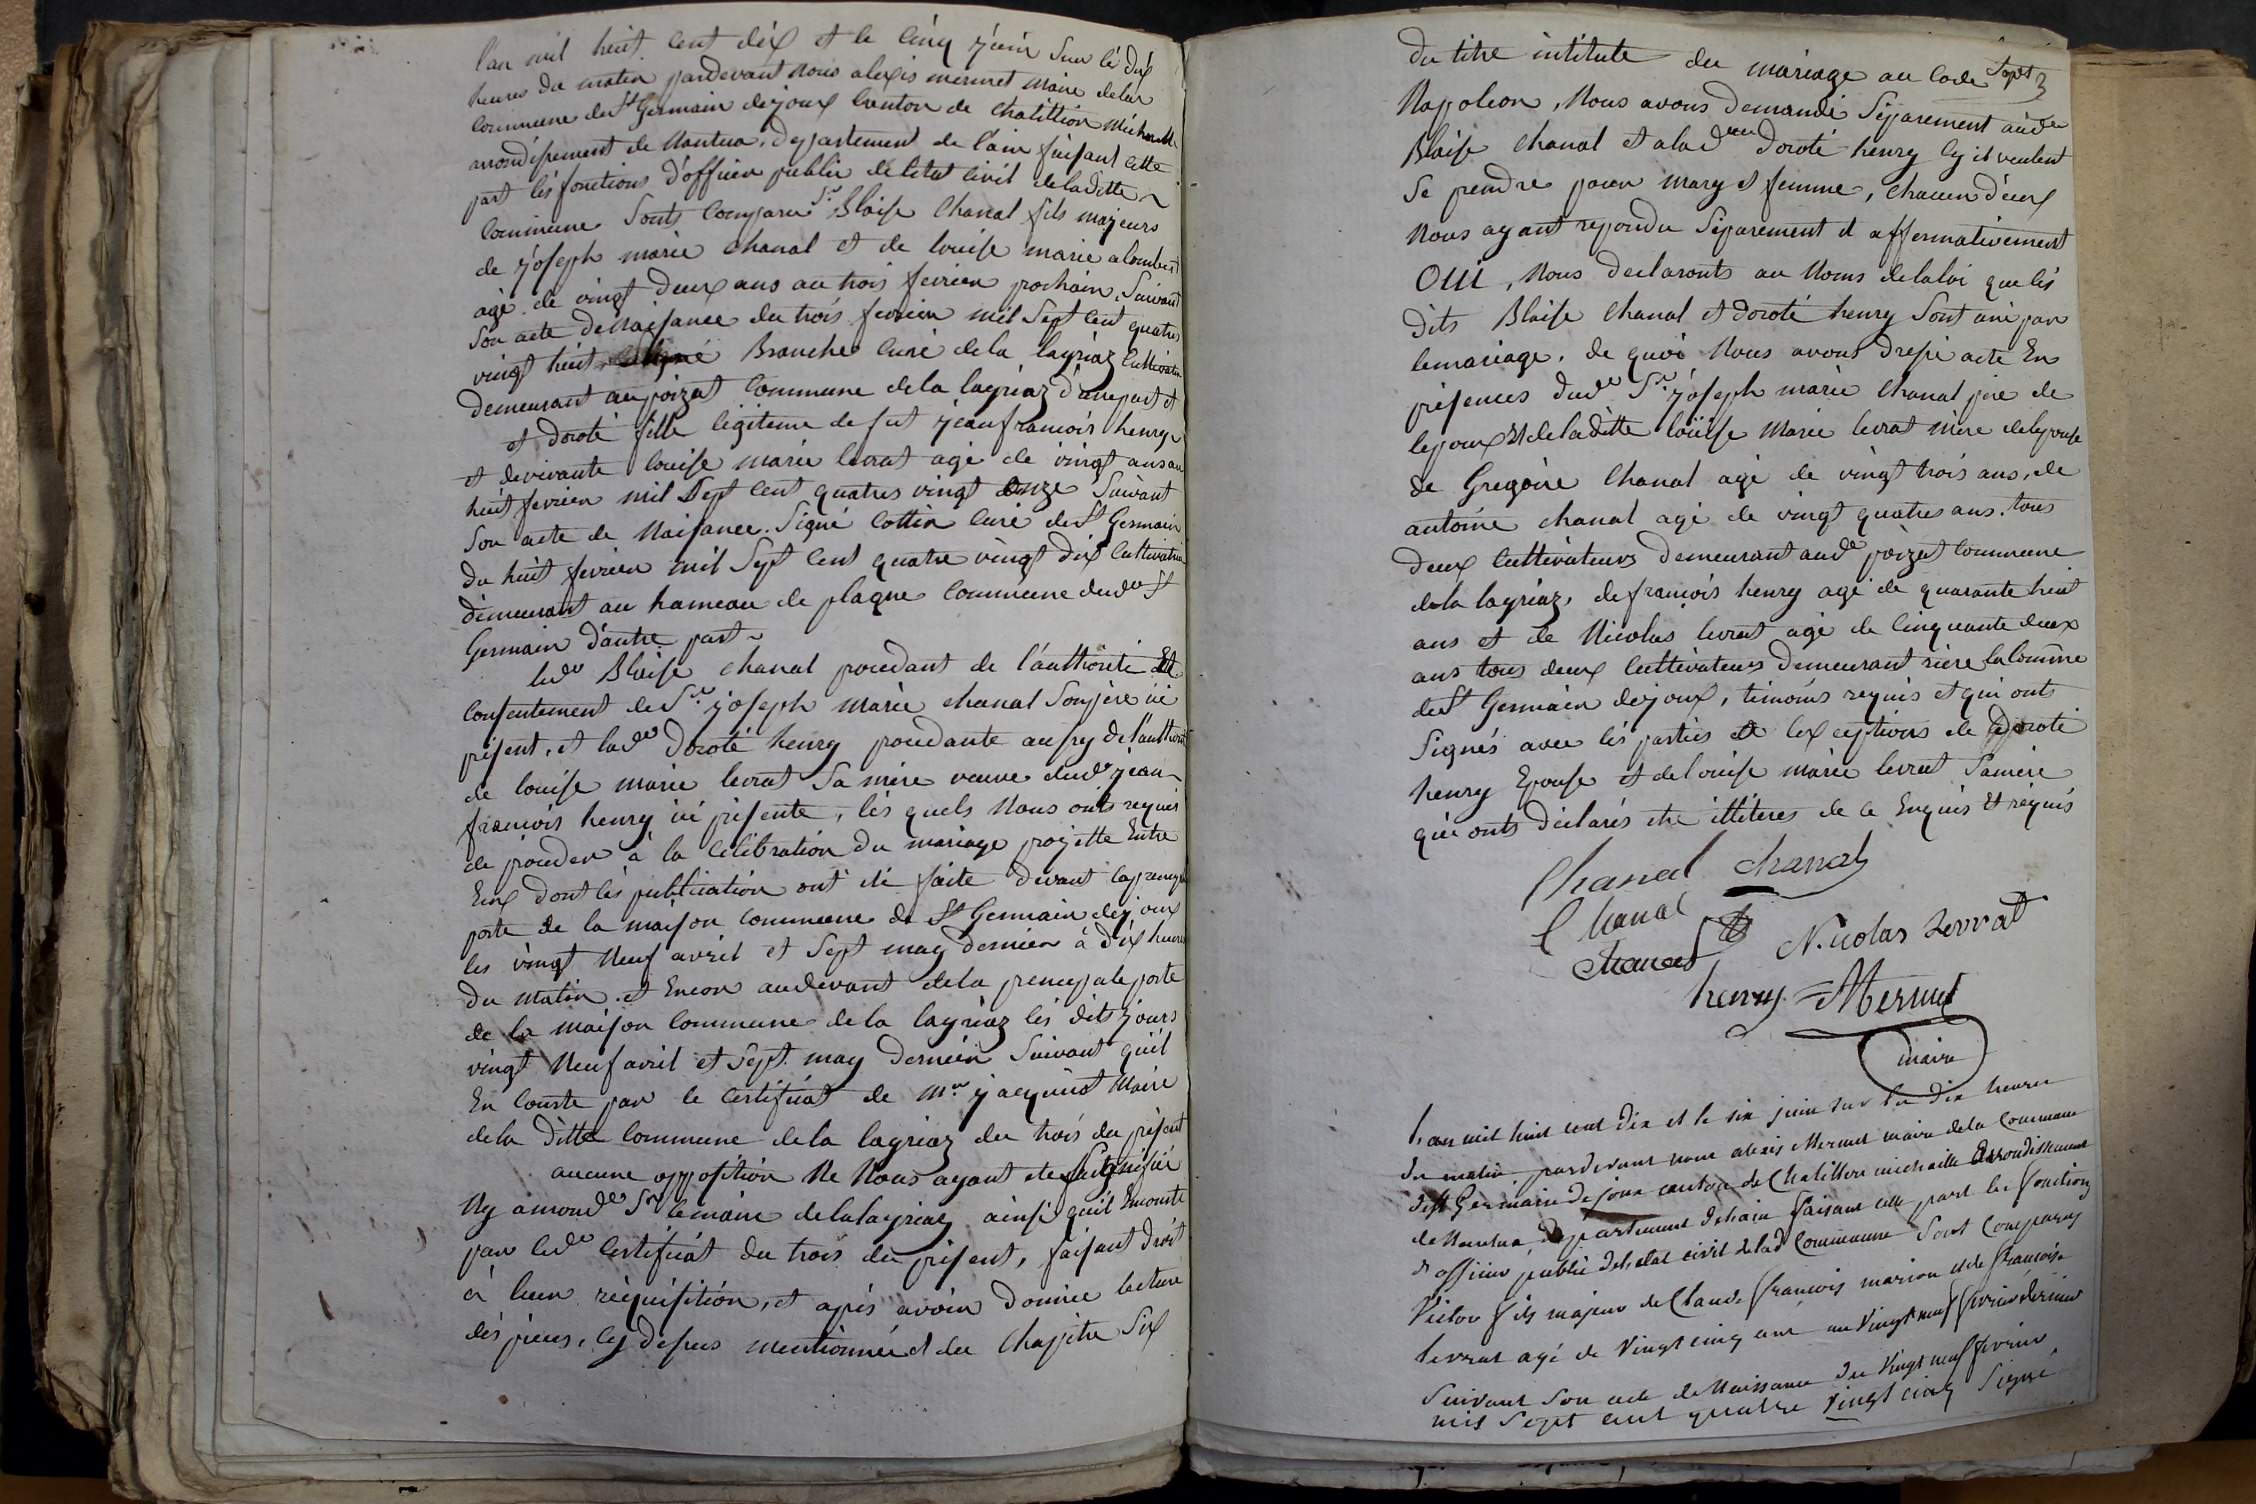 l'an mil huit cent dix et le cinq juin sur les dix
heures du matin pardevant nous alexis mermet maire de la
commune de St Germain dejoux canton de chatillion michaille
arrondisement de Nantua, departement de l'ain faisant cette
part les fonctions d'officier public de letat civil de la ditte
commune sonts comparu Sr. Blaise Chanal fils majeurs
de joseph marie chanal et de louise marie alombert
agé de vingt deux ans au trois fevrier prochain, Suivant
Son acte de Naissance du trois fevrier mil Sept cent quatres
vingt huit signé Branche curé de la layriaz cultivateur
demeurant au poizat commune de la layriaz d'une part et
et doroté fille legiteme de fut jean francois henry
et de vivante louise marie levrat agé de vingt ans au
huit fevrier mil Sept cent quatres vingt onze Suivant
Son acte de Naisance. Signé Cottin curé de St Germain
du huit fevrier mil Sept cent quatre vingt dix cultivatrice
demeurant au hameau de plagne Commune dudt St
Germain d'autre part
ledt Blaise chanal procedant de l'authorité et
consentement de Sr. joseph marie chanal Sonpère ici
présent, et ladte doroté henry procedante au sy de l'authorité
de louise marie levrat Sa mère veuve dudt jean
francois henry ici présente, lés quels Nous onts requis
de proceder à la celebration du mariage projette Entre
Eux dont lés publication ont été faite devant la principale
porte de la maison commune de St Germain dejoux
les vingt Neuf avril et Sept may dernier à dix heures
du matin. et Encore au devant de la principale porte
de la maison commune de la layriaz lés dits jours
vingt Neuf avril et Sept may dernier Suivant qu'il
En conste par le certificat de Mr. jacquinot Maire
de la ditte commune de la layriaz du trois du présent
aucune opposition Ne Nous ayant été Signifié
Ny a mondt Sr le maire de la layriaz ainsi qu'il En conste
par ledt certificat du trois du présent, faisant droit
à leur réquisition, et après avoir donnée lecture
dés pieces, cy desus mentionnée et du Chapitre Six
du titre intitule du mariage au Code
Sept
Napoleon, Nous avons demandé Séparement audt
Blaise chanal et a la dte doroté henry Sy il veulent
Se prendre pour mary et femme, chacun d'eux
Nous ayant repondu Séparement et affermativement
OUI, Nous declaronts au Noms de la loi que lés
dits Blaise Chanal et doroté henry Sont uni par
le mariage. de quoi Nous avons dressé acte En
présences dudt Sr. joseph marie Chanal père de
lepoux et de la ditte louise Marie levrat mère de lepouse
de Gregoire Chanal agé de vingt trois ans, de
antoine chanal agé de vingt quatres ans. tous
deux cultivateurs demeurant audt poizat commune
de la layriaz, de françois henry agé de quarante huit
ans et de Nicolas levrat agé de cinquante deux
ans tous deux cultivateurs demeurant rière la Comme
de St Germain dejoux, témoins requis et qui onts
Signés avec lés parties et lexceptions de doroté
henry Epouse et de louise marie levrat Sa mère
qui onts déclarés etre illiteres de ce Enquis et réquis
Chanal chanal
Chanal
Chanal Nicolas Levrat
henry Mermet
maire
L'an mil huit cent dix et le six juin sur les dix heures
du matin, pardevant nous alexis Mermet maire de la Commune
de St Germain de joux canton de Chatillon michaille arrondissement
de Nantua, departement de l'ain faisant cette part les fonctions
d'officier public de l'etat civil de lad Commune Sont comparus
Victor fils majeur de Claude francois marion et de francoise
levrat agé de vingt cinq ans au vingt neuf fevrier dernier
Suivant Son acte de Naissance du vingt neuf fevrier
mil Sept cent quatre vingt cinq Signé